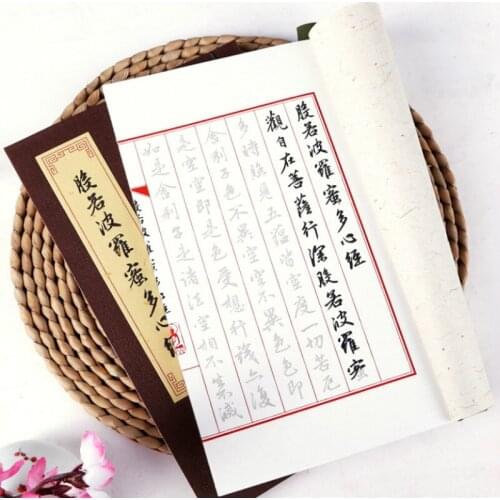 般若波羅蜜多心經
觀自在菩薩行深般若波羅蜜
多時照見五蘊皆空度一切苦厄
舍利子色不異空空不異色色即
是空空即是色受想行識亦復
如是舍利子是諸法空相不滅
般若波羅蜜多心經